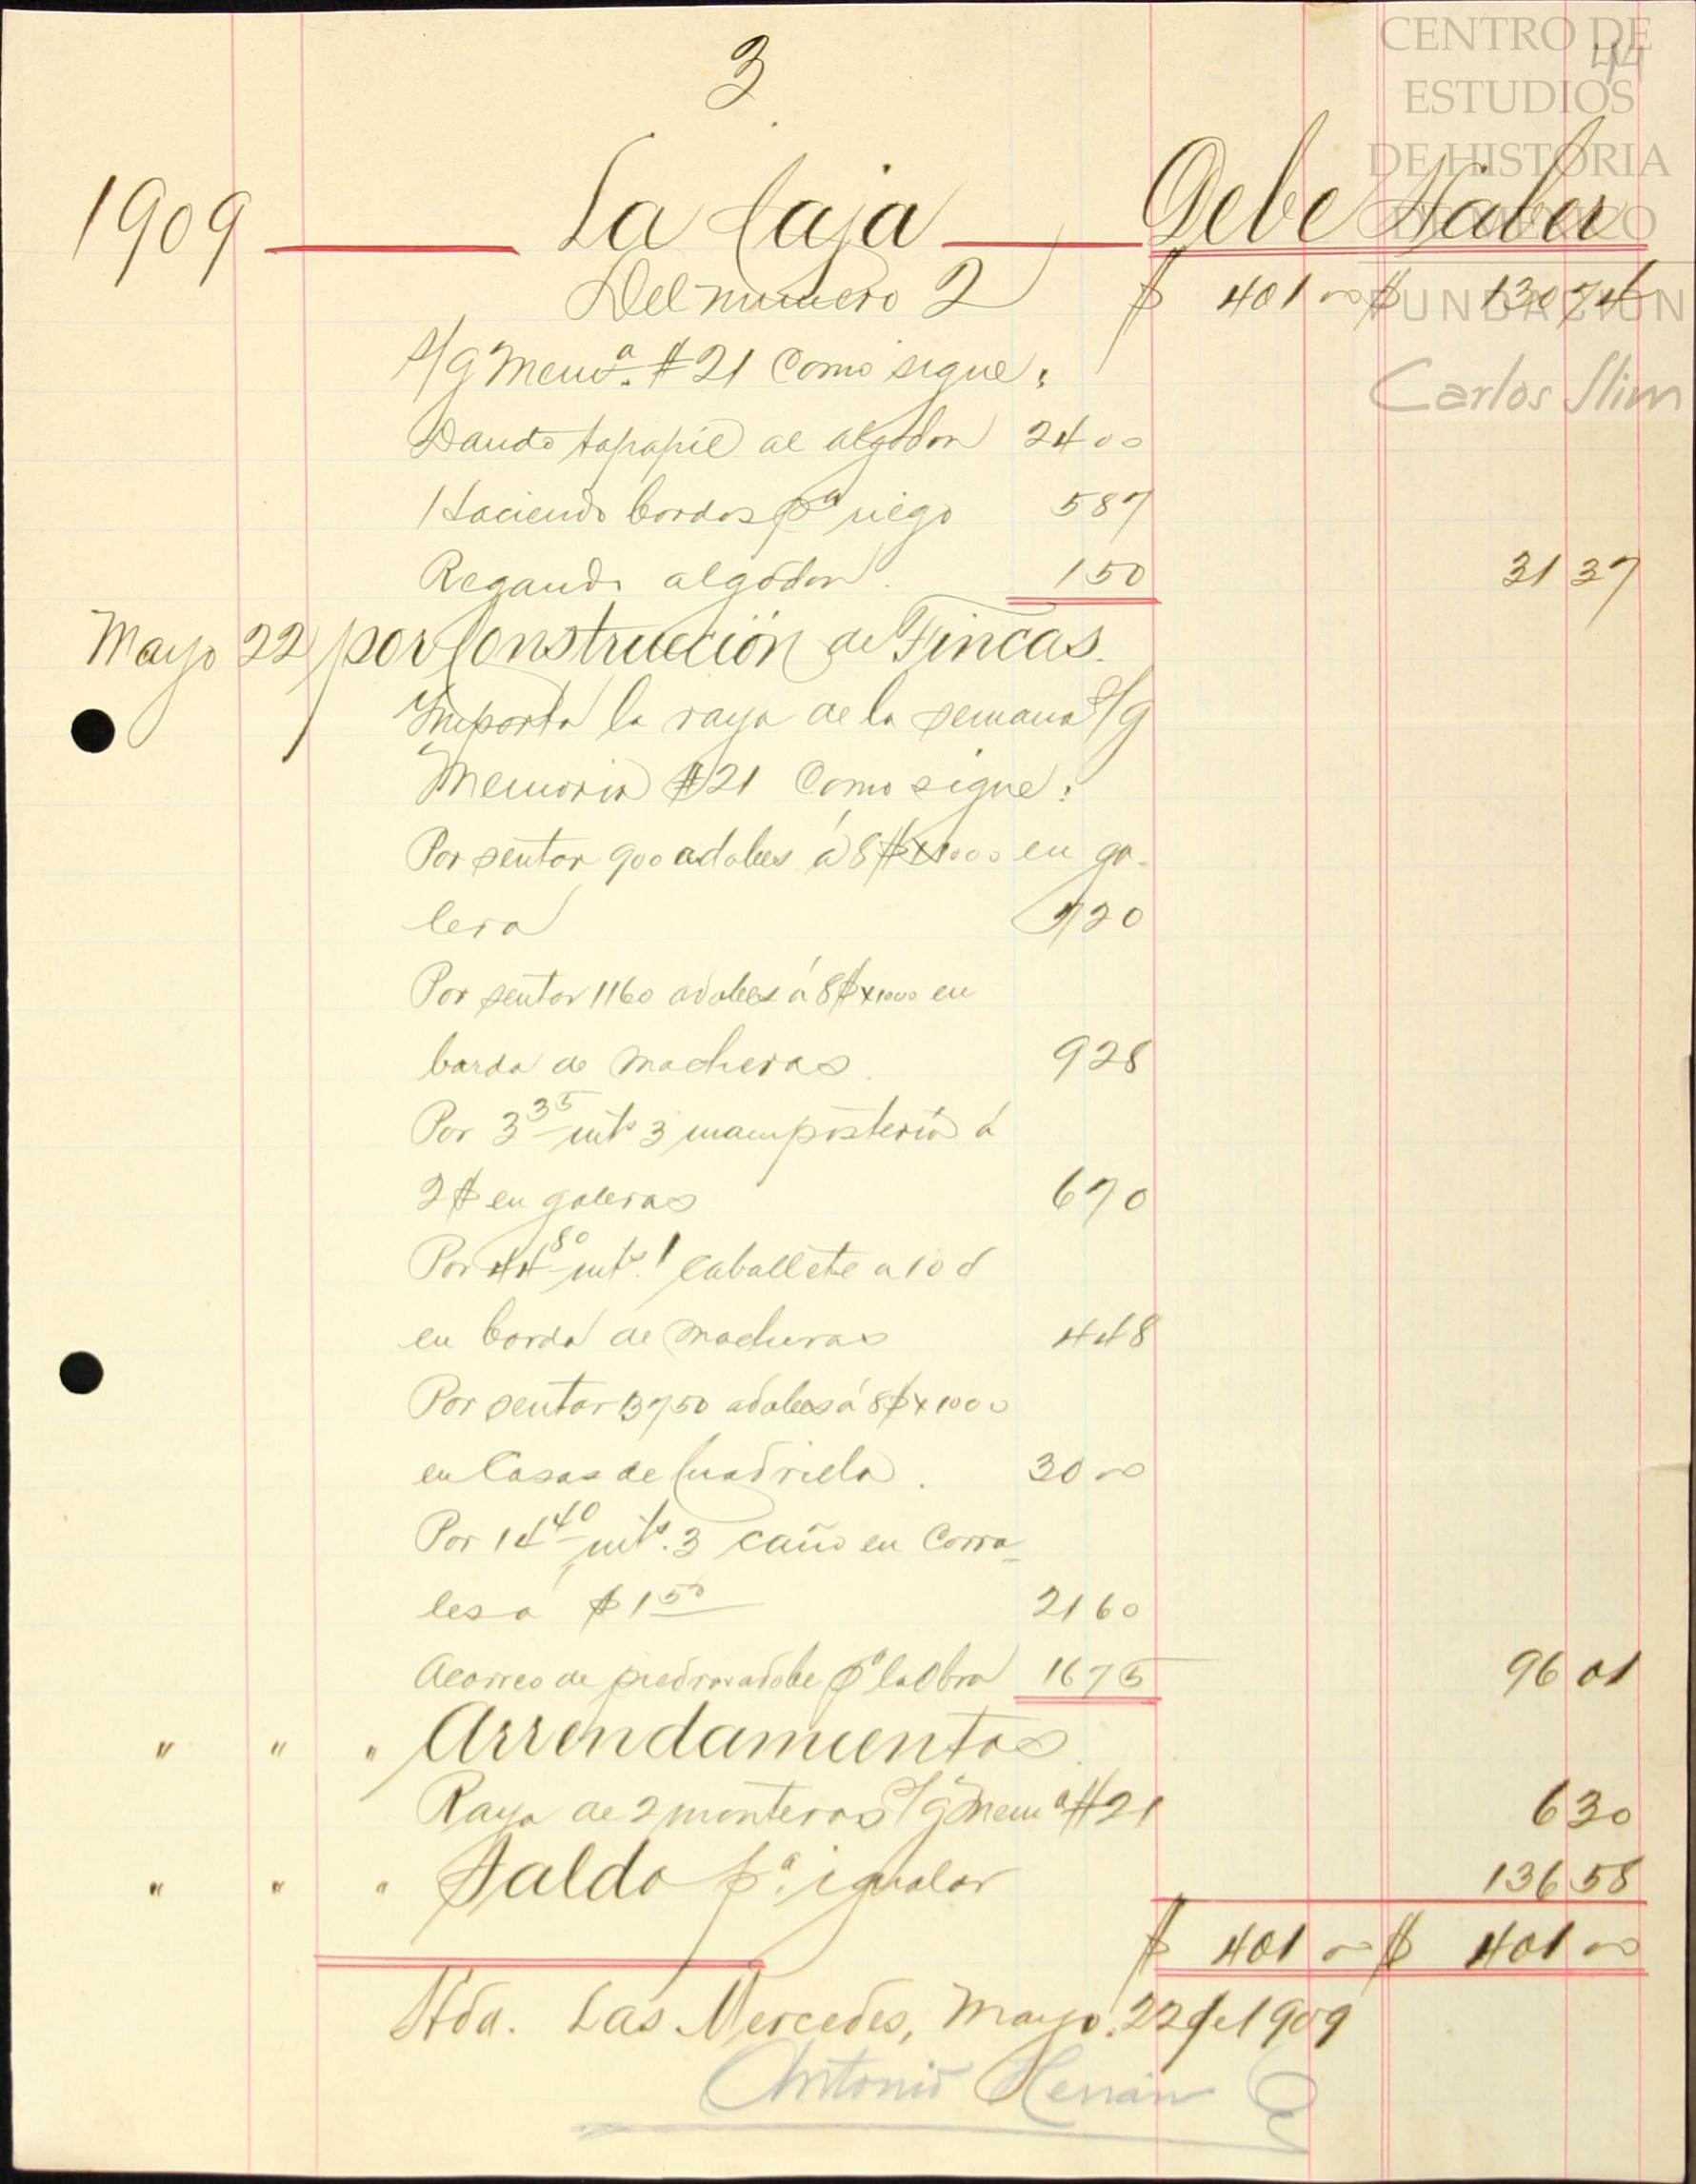 3
44
CENTRO DE
ESTUDIOS
DE HISTORIA
DE MÉXICO
FUNDACIÓN
Carlos Slim
1909 La Caja Debe Haber
Del numero 2 $ 401 00 $ 130 74
s/g Mem.ª #21 Como sigue:
Dando tapapié al algodon 24 00
Haciendo bordos pª riego 5 87
Regando algodon. 1 50 31 37
Mayo 22 por Construcción de Fincas.
Importa la raya de la semana s/g
Memoria #21 Como sigue:
Por sentar 900 adobes á 8$ x 1000 en ga-
lera 7 20
Por sentar 1160 adobes á 8$ x 1000 en
barda de macheras. 9 28
Por 3 35 mts 3 mamposteria á
2$ en galeras 6 70
Por 44 80 mts. l caballete a 10 ¢
en barda de macheras 4 48
Por sentar 3750 adobes á 8$ x 1000
en Casas de Cuadrilla. 30 00
Por 14 40 mts. 3 caño en Corra-
les a $ 1 50 21 60
Acarreo de piedra adobe pª la Obra 16 75 96 01
" " " Arrendamientos.
Raya de 2 monteros s/g Memª #21 6 30
" " " Saldo p.ª igualar 136 58
$ 401 00 $ 401 00
Hda. Las Mercedes, Mayo. 22 de 1909
Antonio